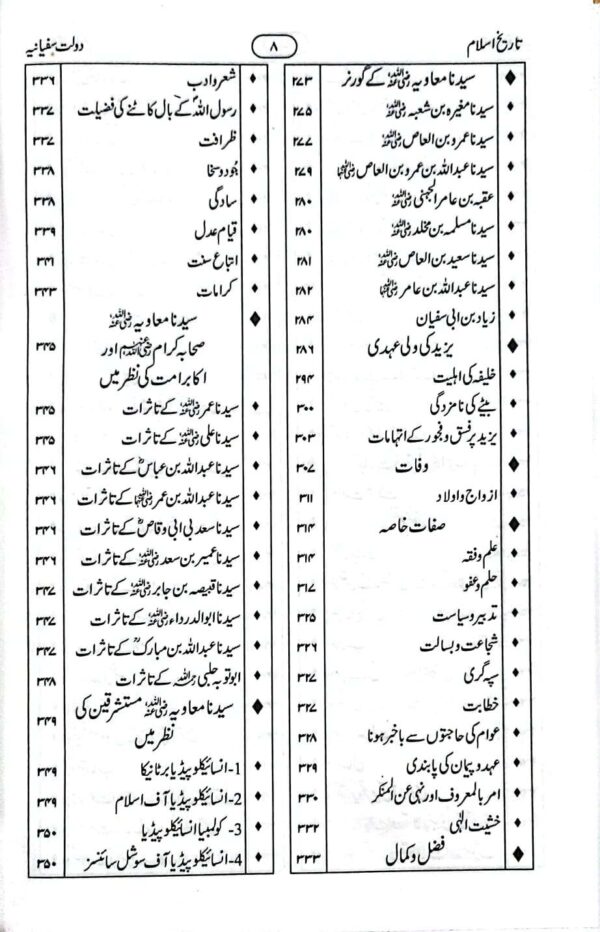 تاریخ اسلام ۸ دولت سفیانیہ
سیدنا معاویہ رضی اللہ عنہ کے گورنر ۲۷۳
سیدنا مغیرہ بن شعبہ رضی اللہ عنہ ۲۷۵
سیدنا عمرو بن العاص رضی اللہ عنہ ۲۷۷
سیدنا عبداللہ بن عمرو بن العاص رضی اللہ عنہما ۲۷۹
عقبہ بن عامر الجہنی رضی اللہ عنہ ۲۸۰
سیدنا مسلمہ بن مخلد رضی اللہ عنہ ۲۸۰
سیدنا سعید بن العاص رضی اللہ عنہ ۲۸۱
سیدنا عبداللہ بن عامر رضی اللہ عنہما ۲۸۲
زیاد بن ابی سفیان ۲۸۴
یزید کی ولی عہدی ۲۸۶
خلیفہ کی اہلیت ۲۹۴
بیٹے کی نامزدگی ۳۰۰
یزید پر فسق و فجور کے اتہامات ۳۰۳
وفات ۳۰۷
ازواج و اولاد ۳۱۱
صفات خاصہ ۳۱۴
علم و فقہ ۳۱۴
حلم و عفو ۳۱۷
تدبیر و سیاست ۳۲۵
شجاعت و بسالت ۳۲۶
سپہ گری ۳۲۷
خطابت ۳۲۷
عوام کی حاجتوں سے باخبر ہونا ۳۲۸
عہد و پیمان کی پابندی ۳۲۹
امر بالمعروف اور نہی عن المنکر ۳۳۰
خشیت الٰہی ۳۳۲
فضل و کمال ۳۳۳
شعر و ادب ۳۳۶
رسول اللہ ؐ کے بال کاٹنے کی فضیلت ۳۳۷
ظرافت ۳۳۷
جُود و سخا ۳۳۸
سادگی ۳۳۸
قیام عدل ۳۳۹
اتباع سنت ۳۴۱
کرامات ۳۴۳
سیدنا معاویہ رضی اللہ عنہ
صحابہ کرام رضی اللہ عنہم اور ۳۴۵
اکابر امت کی نظر میں
سیدنا عمر رضی اللہ عنہ کے تاثرات ۳۴۵
سیدنا علی رضی اللہ عنہ کے تاثرات ۳۴۵
سیدنا عبداللہ بن عباس ؓ کے تاثرات ۳۴۶
سیدنا عبداللہ بن عمر رضی اللہ عنہما کے تاثرات ۳۴۶
سیدنا سعد بی ابی وقاص ؓ کے تاثرات ۳۴۶
سیدنا عمیر بن سعد رضی اللہ عنہ کے تاثرات ۳۴۶
سیدنا قبیصہ بن جابر رضی اللہ عنہ کے تاثرات ۳۴۷
سیدنا ابوالدرداء رضی اللہ عنہ کے تاثرات ۳۴۷
سیدنا عبداللہ بن مبارک ؒ کے تاثرات ۳۴۷
ابو توبہ حلبی رحمہ اللہ کے تاثرات ۳۴۸
سیدنا معاویہ رضی اللہ عنہ مستشرقین کی
نظر میں ۳۴۹
1- انسائیکلو پیڈیا برٹانیکا ۳۴۹
2- انسائیکلو پیڈیا آف اسلام ۳۴۹
3- کولمبیا انسائیکلو پیڈیا ۳۵۰
4- انسائیکلو پیڈیا آف سوشل سائنسز ۳۵۰